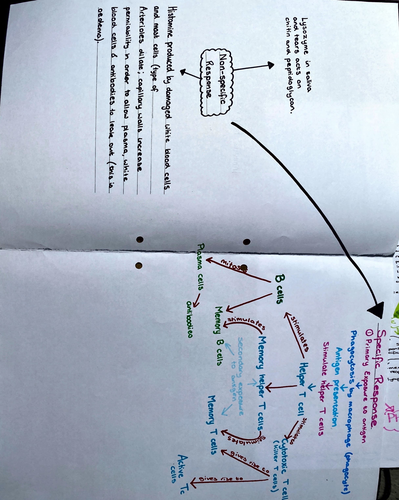 Lysozyme in saliva
and tears acts on
chitin and peptidoglycan.
Non-specific
Response
Histamine produced by damaged white blood cells
and mast cells (type of
Arterioles dilate; capillary walls increase
permiability in order to allow plasma, white
blood cells & antibodies to leak out (this is
oedema).
Specific Response
① Primary Exposure to antigen
Phagocytosis by macrophage (phagocyte)
Antigen presentation
Stimulate helper T cells
Helper T cell
stimulates
stimulates
B cells
Cytotoxic T cell
(killer T cells)
mitosis
stimulates
Memory helper T cells
Plasma cells
antibodies
Memory B cells
secondary exposure
to antigen
Memory T cells
stimulates
gives rise to
gives rise to
Active Tc
cells